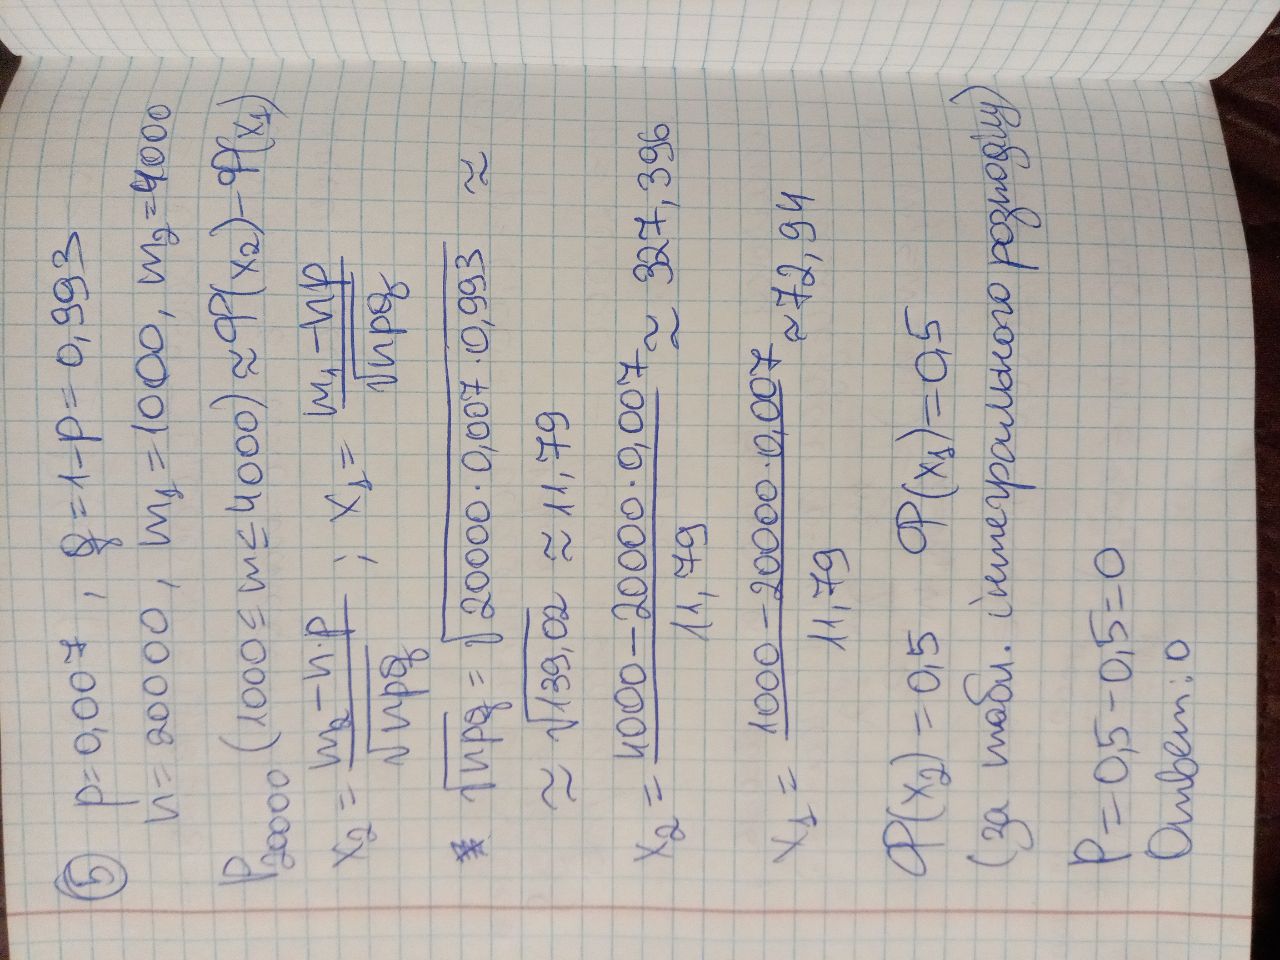 ⑤ p=0,007 , q=1-p=0,993
n=20000, m₁=1000, m₂=4000
P₂₀₀₀₀ (1000≤m≤4000)≈Φ(x₂)-Φ(x₁)
x₂ = (m₂-n·p)/√npq ; x₁ = (m₁-np)/√npq
√npq = √20000·0,007·0,993 ≈
≈ √139,02 ≈ 11,79
x₂ = (4000-20000·0,007)/11,79 ≈ 327,396
x₁ = (1000-20000·0,007)/11,79 ≈ 72,94
Φ(x₂)=0,5 Φ(x₁)=0,5
(за табл. інтегрального розподілу)
P=0,5-0,5=0
Ответ: 0